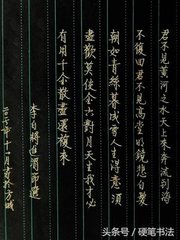 君不見黃河之水天上來奔流到海
不復回君不見高堂明鏡悲白髮
朝如青絲暮成雪人生得意須
盡歡莫使金對月天生我才必
有用千金散盡還復來
李白將進酒節選
年十一月書於
头条号 / 硬笔书法